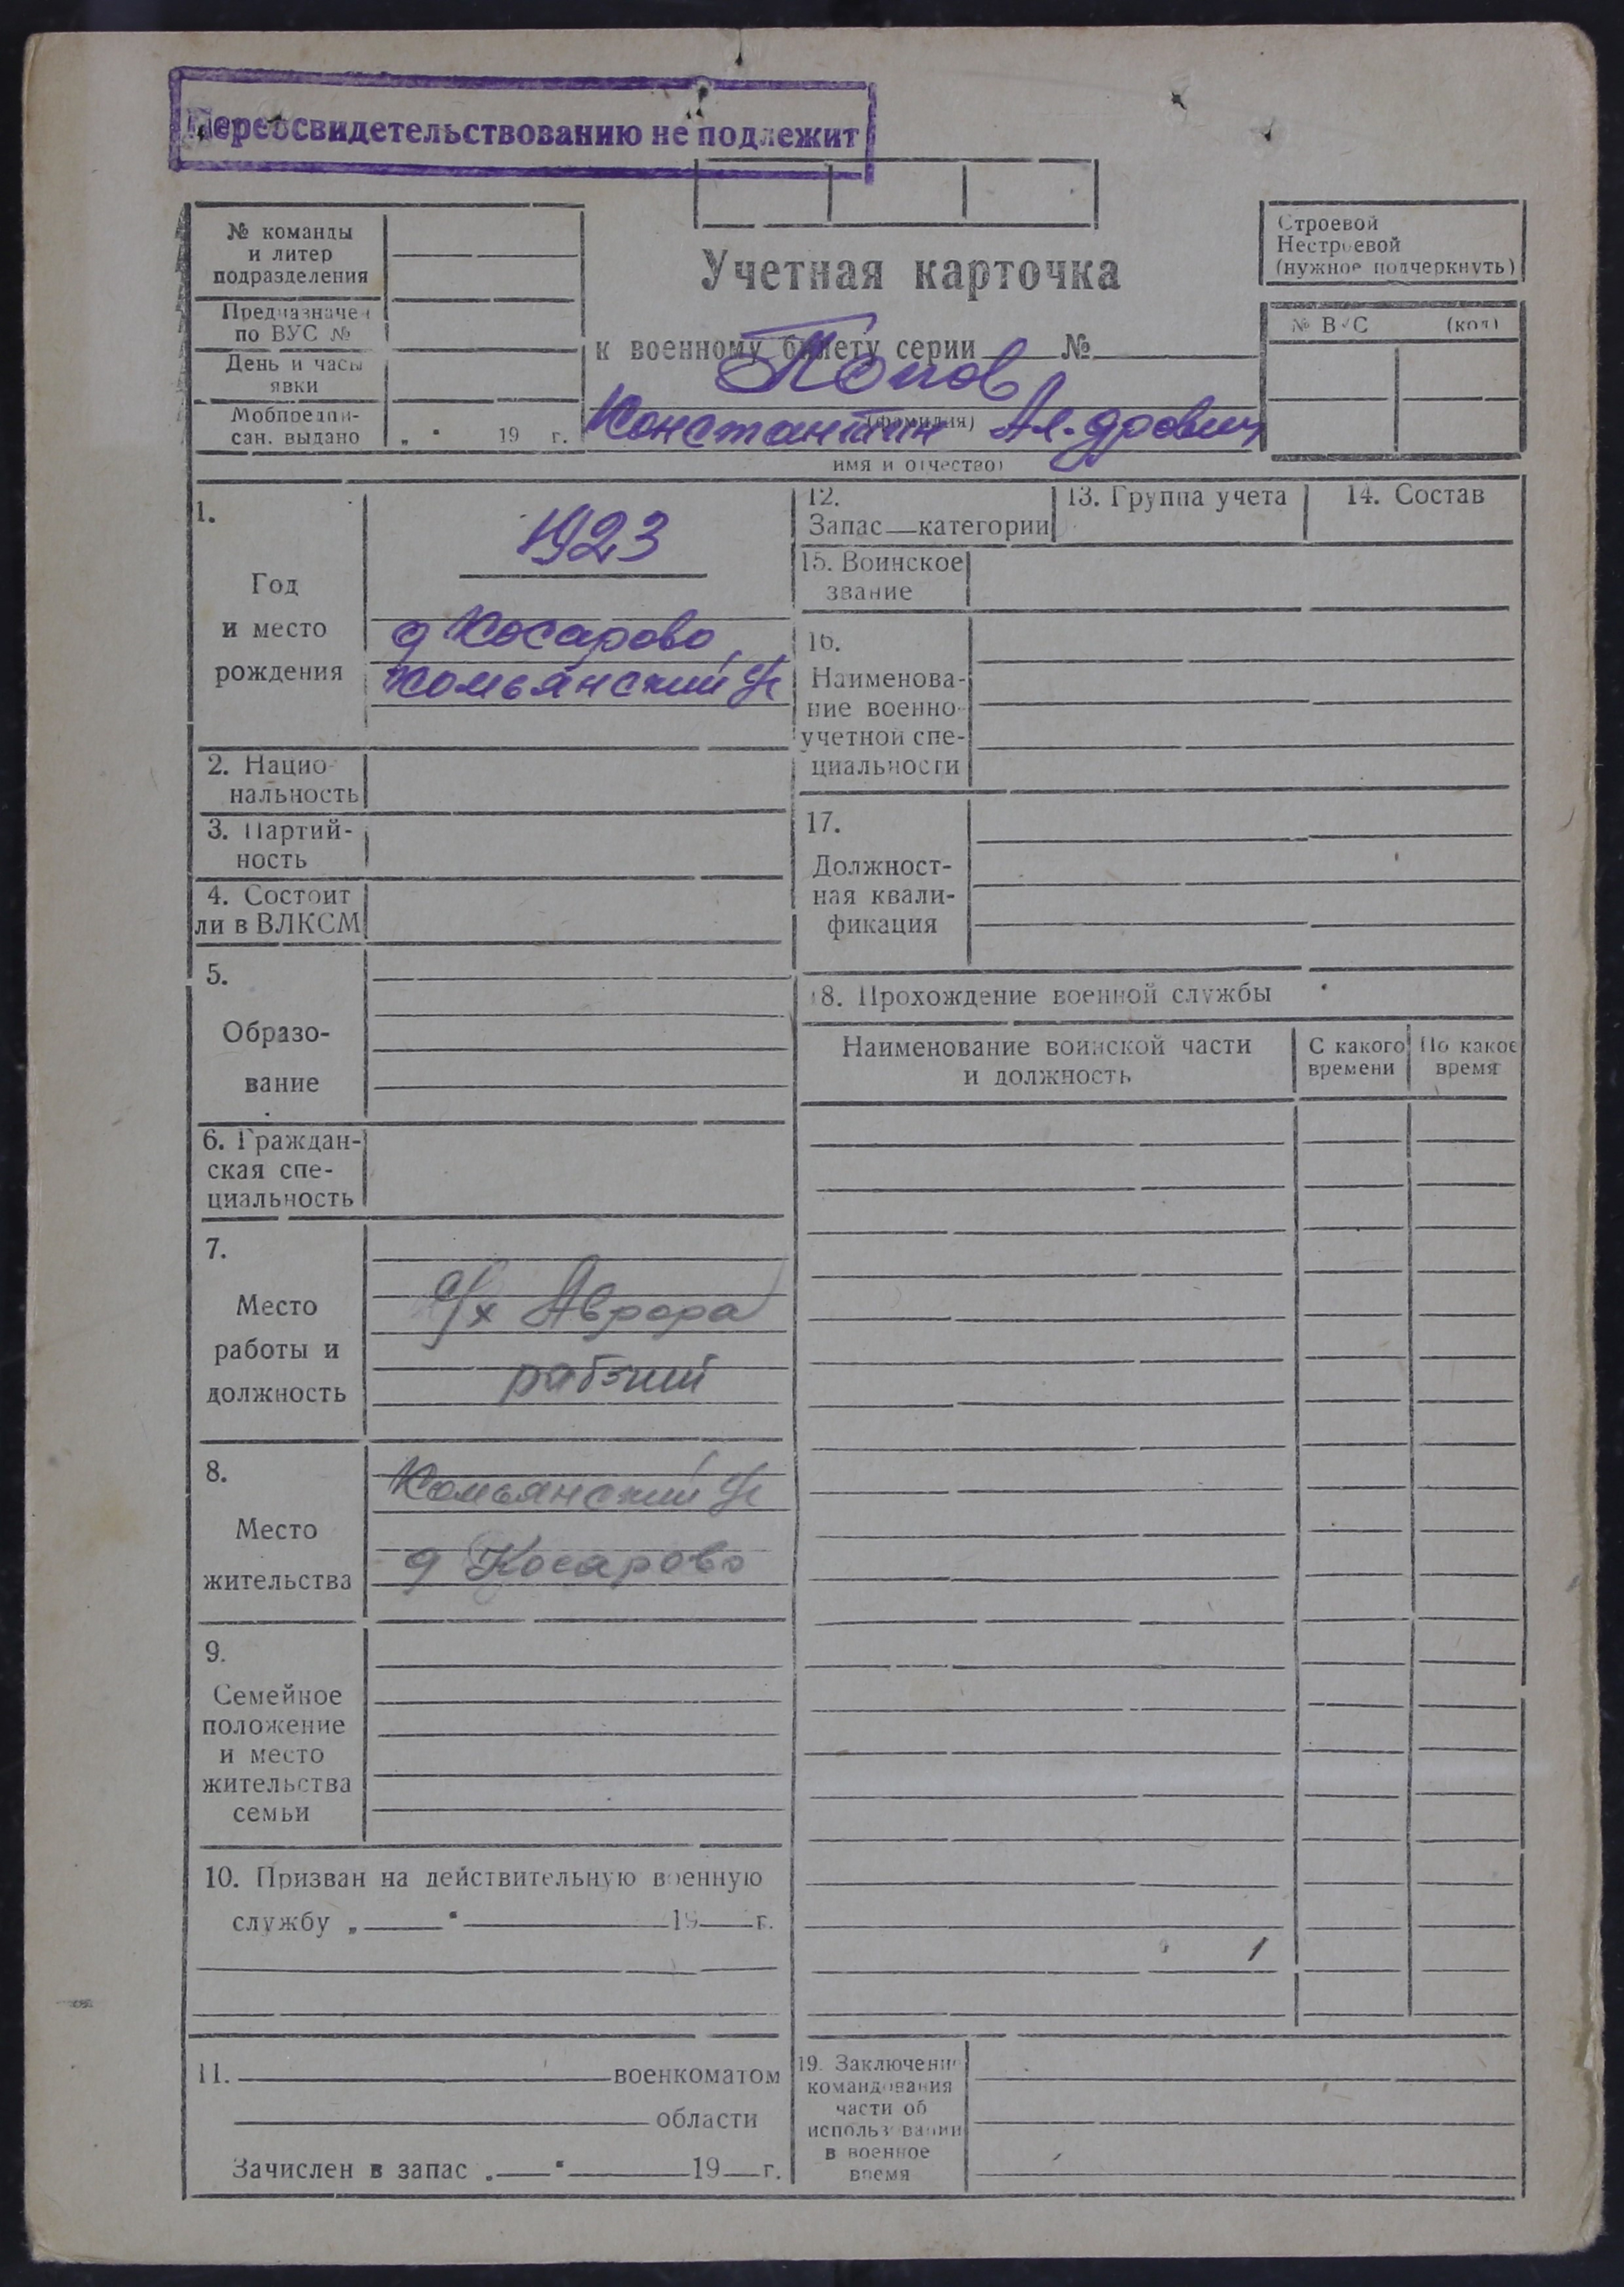 Переосвидетельствованию не подлежит
№ команды
и литер
подразделения
Предназначен
по ВУС №
День и часы
явки
Мобпредпи-
сан. выдано „ " 19 г.
Учетная карточка
к военному билету серии №
Попов
(фамилия)
Константин Ал-дрович
имя и отчество)
Строевой
Нестроевой
(нужное подчеркнуть)
№ ВУС (код)
1.
Год
и место
рождения
1923
д Косарово
Комьянский с/с
2. Нацио-
нальность
3. Партий-
ность
4. Состоит
ли в ВЛКСМ
5.
Образо-
вание
6. Граждан-
ская спе-
циальность
7.
Место
работы и
должность
с/х Аврора
рабочий
8.
Место
жительства
Комьянский с/с
д Косарово
9.
Семейное
положение
и место
жительства
семьи
10. Призван на действительную военную
службу „ " 19 г.
11. военкоматом
области
Зачислен в запас „ " 19 г.
12.
Запас—категории
13. Группа учета
14. Состав
15. Воинское
звание
16.
Наименова-
ние военно-
учетной спе-
циальности
17.
Должност-
ная квали-
фикация
18. Прохождение военной службы
Наименование воинской части
и должность
С какого
времени
По какое
время
19. Заключение
командования
части об
использовании
в военное
время